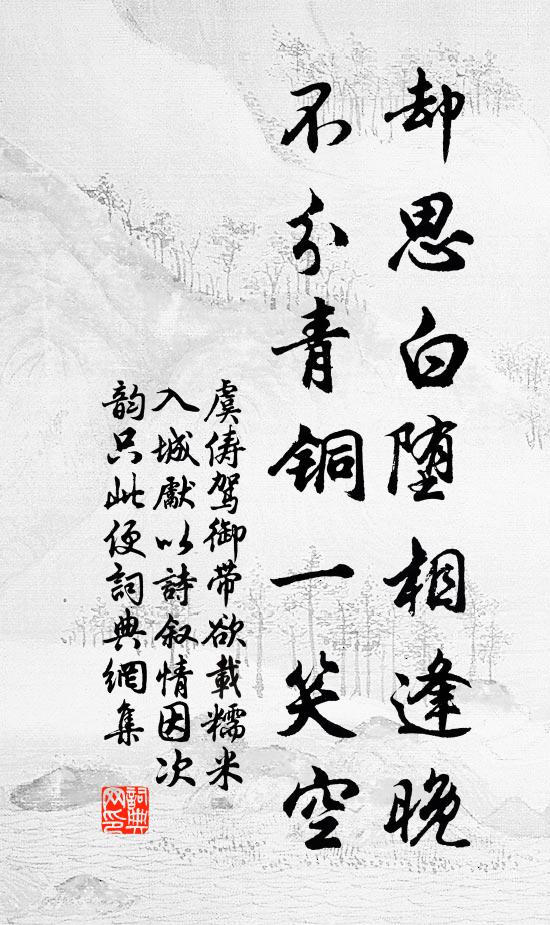 却思白堕相逢晚
不分青铜一笑空
虞俦驾御带欲载糯米
入城献以诗叙情因次
韵只此便词典网集
词典网印